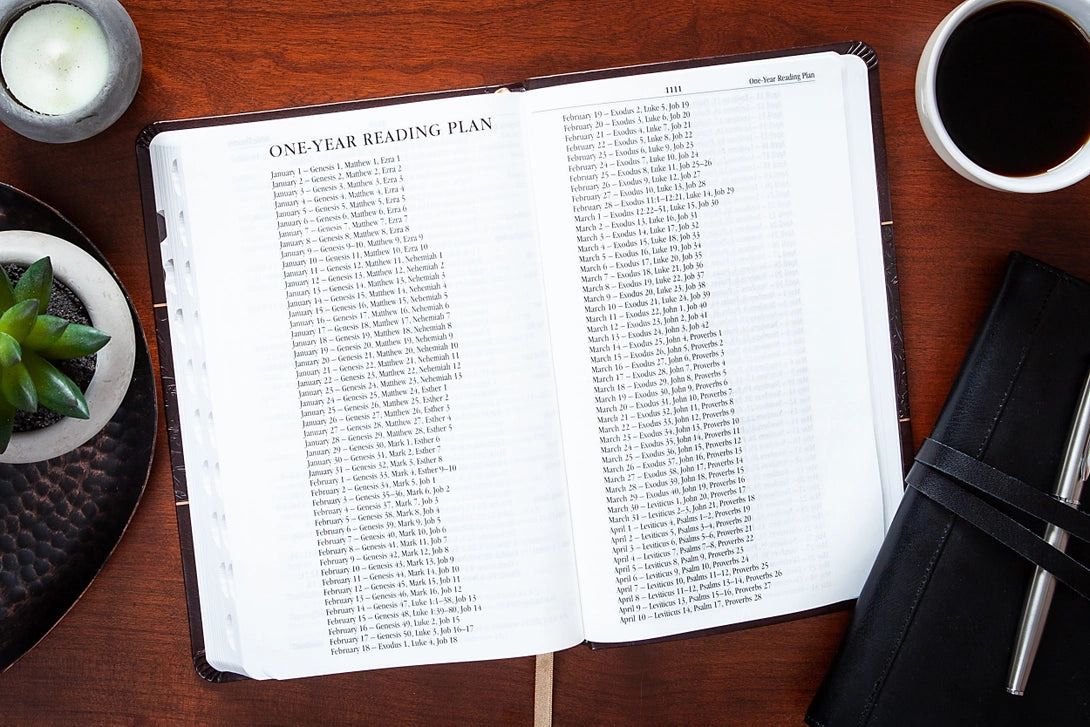 ONE-YEAR READING PLAN
January 1 – Genesis 1, Matthew 1, Ezra 1
January 2 – Genesis 2, Matthew 2, Ezra 2
January 3 – Genesis 3, Matthew 3, Ezra 3
January 4 – Genesis 4, Matthew 4, Ezra 4
January 5 – Genesis 5, Matthew 5, Ezra 5
January 6 – Genesis 6, Matthew 6, Ezra 6
January 7 – Genesis 7, Matthew 7, Ezra 7
January 8 – Genesis 8, Matthew 8, Ezra 8
January 9 – Genesis 9–10, Matthew 9, Ezra 9
January 10 – Genesis 11, Matthew 10, Ezra 10
January 11 – Genesis 12, Matthew 11, Nehemiah 1
January 12 – Genesis 13, Matthew 12, Nehemiah 2
January 13 – Genesis 14, Matthew 13, Nehemiah 3
January 14 – Genesis 15, Matthew 14, Nehemiah 4
January 15 – Genesis 16, Matthew 15, Nehemiah 5
January 16 – Genesis 17, Matthew 16, Nehemiah 6
January 17 – Genesis 18, Matthew 17, Nehemiah 7
January 18 – Genesis 19, Matthew 18, Nehemiah 8
January 19 – Genesis 20, Matthew 19, Nehemiah 9
January 20 – Genesis 21, Matthew 20, Nehemiah 10
January 21 – Genesis 22, Matthew 21, Nehemiah 11
January 22 – Genesis 23, Matthew 22, Nehemiah 12
January 23 – Genesis 24, Matthew 23, Nehemiah 13
January 24 – Genesis 25, Matthew 24, Esther 1
January 25 – Genesis 26, Matthew 25, Esther 2
January 26 – Genesis 27, Matthew 26, Esther 3
January 27 – Genesis 28, Matthew 27, Esther 4
January 28 – Genesis 29, Matthew 28, Esther 5
January 29 – Genesis 30, Mark 1, Esther 6
January 30 – Genesis 31, Mark 2, Esther 7
January 31 – Genesis 32, Mark 3, Esther 8
February 1 – Genesis 33, Mark 4, Esther 9–10
February 2 – Genesis 34, Mark 5, Job 1
February 3 – Genesis 35–36, Mark 6, Job 2
February 4 – Genesis 37, Mark 7, Job 3
February 5 – Genesis 38, Mark 8, Job 4
February 6 – Genesis 39, Mark 9, Job 5
February 7 – Genesis 40, Mark 10, Job 6
February 8 – Genesis 41, Mark 11, Job 7
February 9 – Genesis 42, Mark 12, Job 8
February 10 – Genesis 43, Mark 13, Job 9
February 11 – Genesis 44, Mark 14, Job 10
February 12 – Genesis 45, Mark 15, Job 11
February 13 – Genesis 46, Mark 16, Job 12
February 14 – Genesis 47, Luke 1:1–38, Job 13
February 15 – Genesis 48, Luke 1:39–80, Job 14
February 16 – Genesis 49, Luke 2, Job 15
February 17 – Genesis 50, Luke 3, Job 16–17
February 18 – Exodus 1, Luke 4, Job 18
1111
One-Year Reading Plan
February 19 – Exodus 2, Luke 5, Job 19
February 20 – Exodus 3, Luke 6, Job 20
February 21 – Exodus 4, Luke 7, Job 21
February 22 – Exodus 5, Luke 8, Job 22
February 23 – Exodus 6, Luke 9, Job 23
February 24 – Exodus 7, Luke 10, Job 24
February 25 – Exodus 8, Luke 11, Job 25–26
February 26 – Exodus 9, Luke 12, Job 27
February 27 – Exodus 10, Luke 13, Job 28
February 28 – Exodus 11:1–12:21, Luke 14, Job 29
March 1 – Exodus 12:22–51, Luke 15, Job 30
March 2 – Exodus 13, Luke 16, Job 31
March 3 – Exodus 14, Luke 17, Job 32
March 4 – Exodus 15, Luke 18, Job 33
March 5 – Exodus 16, Luke 19, Job 34
March 6 – Exodus 17, Luke 20, Job 35
March 7 – Exodus 18, Luke 21, Job 36
March 8 – Exodus 19, Luke 22, Job 37
March 9 – Exodus 20, Luke 23, Job 38
March 10 – Exodus 21, Luke 24, Job 39
March 11 – Exodus 22, John 1, Job 40
March 12 – Exodus 23, John 2, Job 41
March 13 – Exodus 24, John 3, Job 42
March 14 – Exodus 25, John 4, Proverbs 1
March 15 – Exodus 26, John 5, Proverbs 2
March 16 – Exodus 27, John 6, Proverbs 3
March 17 – Exodus 28, John 7, Proverbs 4
March 18 – Exodus 29, John 8, Proverbs 5
March 19 – Exodus 30, John 9, Proverbs 6
March 20 – Exodus 31, John 10, Proverbs 7
March 21 – Exodus 32, John 11, Proverbs 8
March 22 – Exodus 33, John 12, Proverbs 9
March 23 – Exodus 34, John 13, Proverbs 10
March 24 – Exodus 35, John 14, Proverbs 11
March 25 – Exodus 36, John 15, Proverbs 12
March 26 – Exodus 37, John 16, Proverbs 13
March 27 – Exodus 38, John 17, Proverbs 14
March 28 – Exodus 39, John 18, Proverbs 15
March 29 – Exodus 40, John 19, Proverbs 16
March 30 – Leviticus 1, John 20, Proverbs 17
March 31 – Leviticus 2–3, John 21, Proverbs 18
April 1 – Leviticus 4, Psalms 1–2, Proverbs 19
April 2 – Leviticus 5, Psalms 3–4, Proverbs 20
April 3 – Leviticus 6, Psalms 5–6, Proverbs 21
April 4 – Leviticus 7, Psalms 7–8, Proverbs 22
April 5 – Leviticus 8, Psalm 9, Proverbs 23
April 6 – Leviticus 9, Psalm 10, Proverbs 24
April 7 – Leviticus 10, Psalms 11–12, Proverbs 25
April 8 – Leviticus 11–12, Psalms 13–14, Proverbs 26
April 9 – Leviticus 13, Psalms 15–16, Proverbs 27
April 10 – Leviticus 14, Psalm 17, Proverbs 28